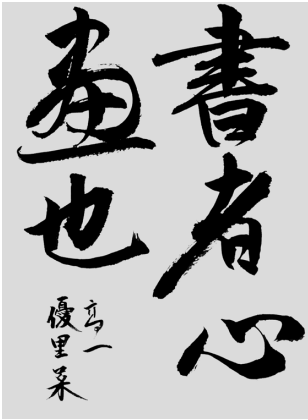 書者心
畫也
高一
優里菜